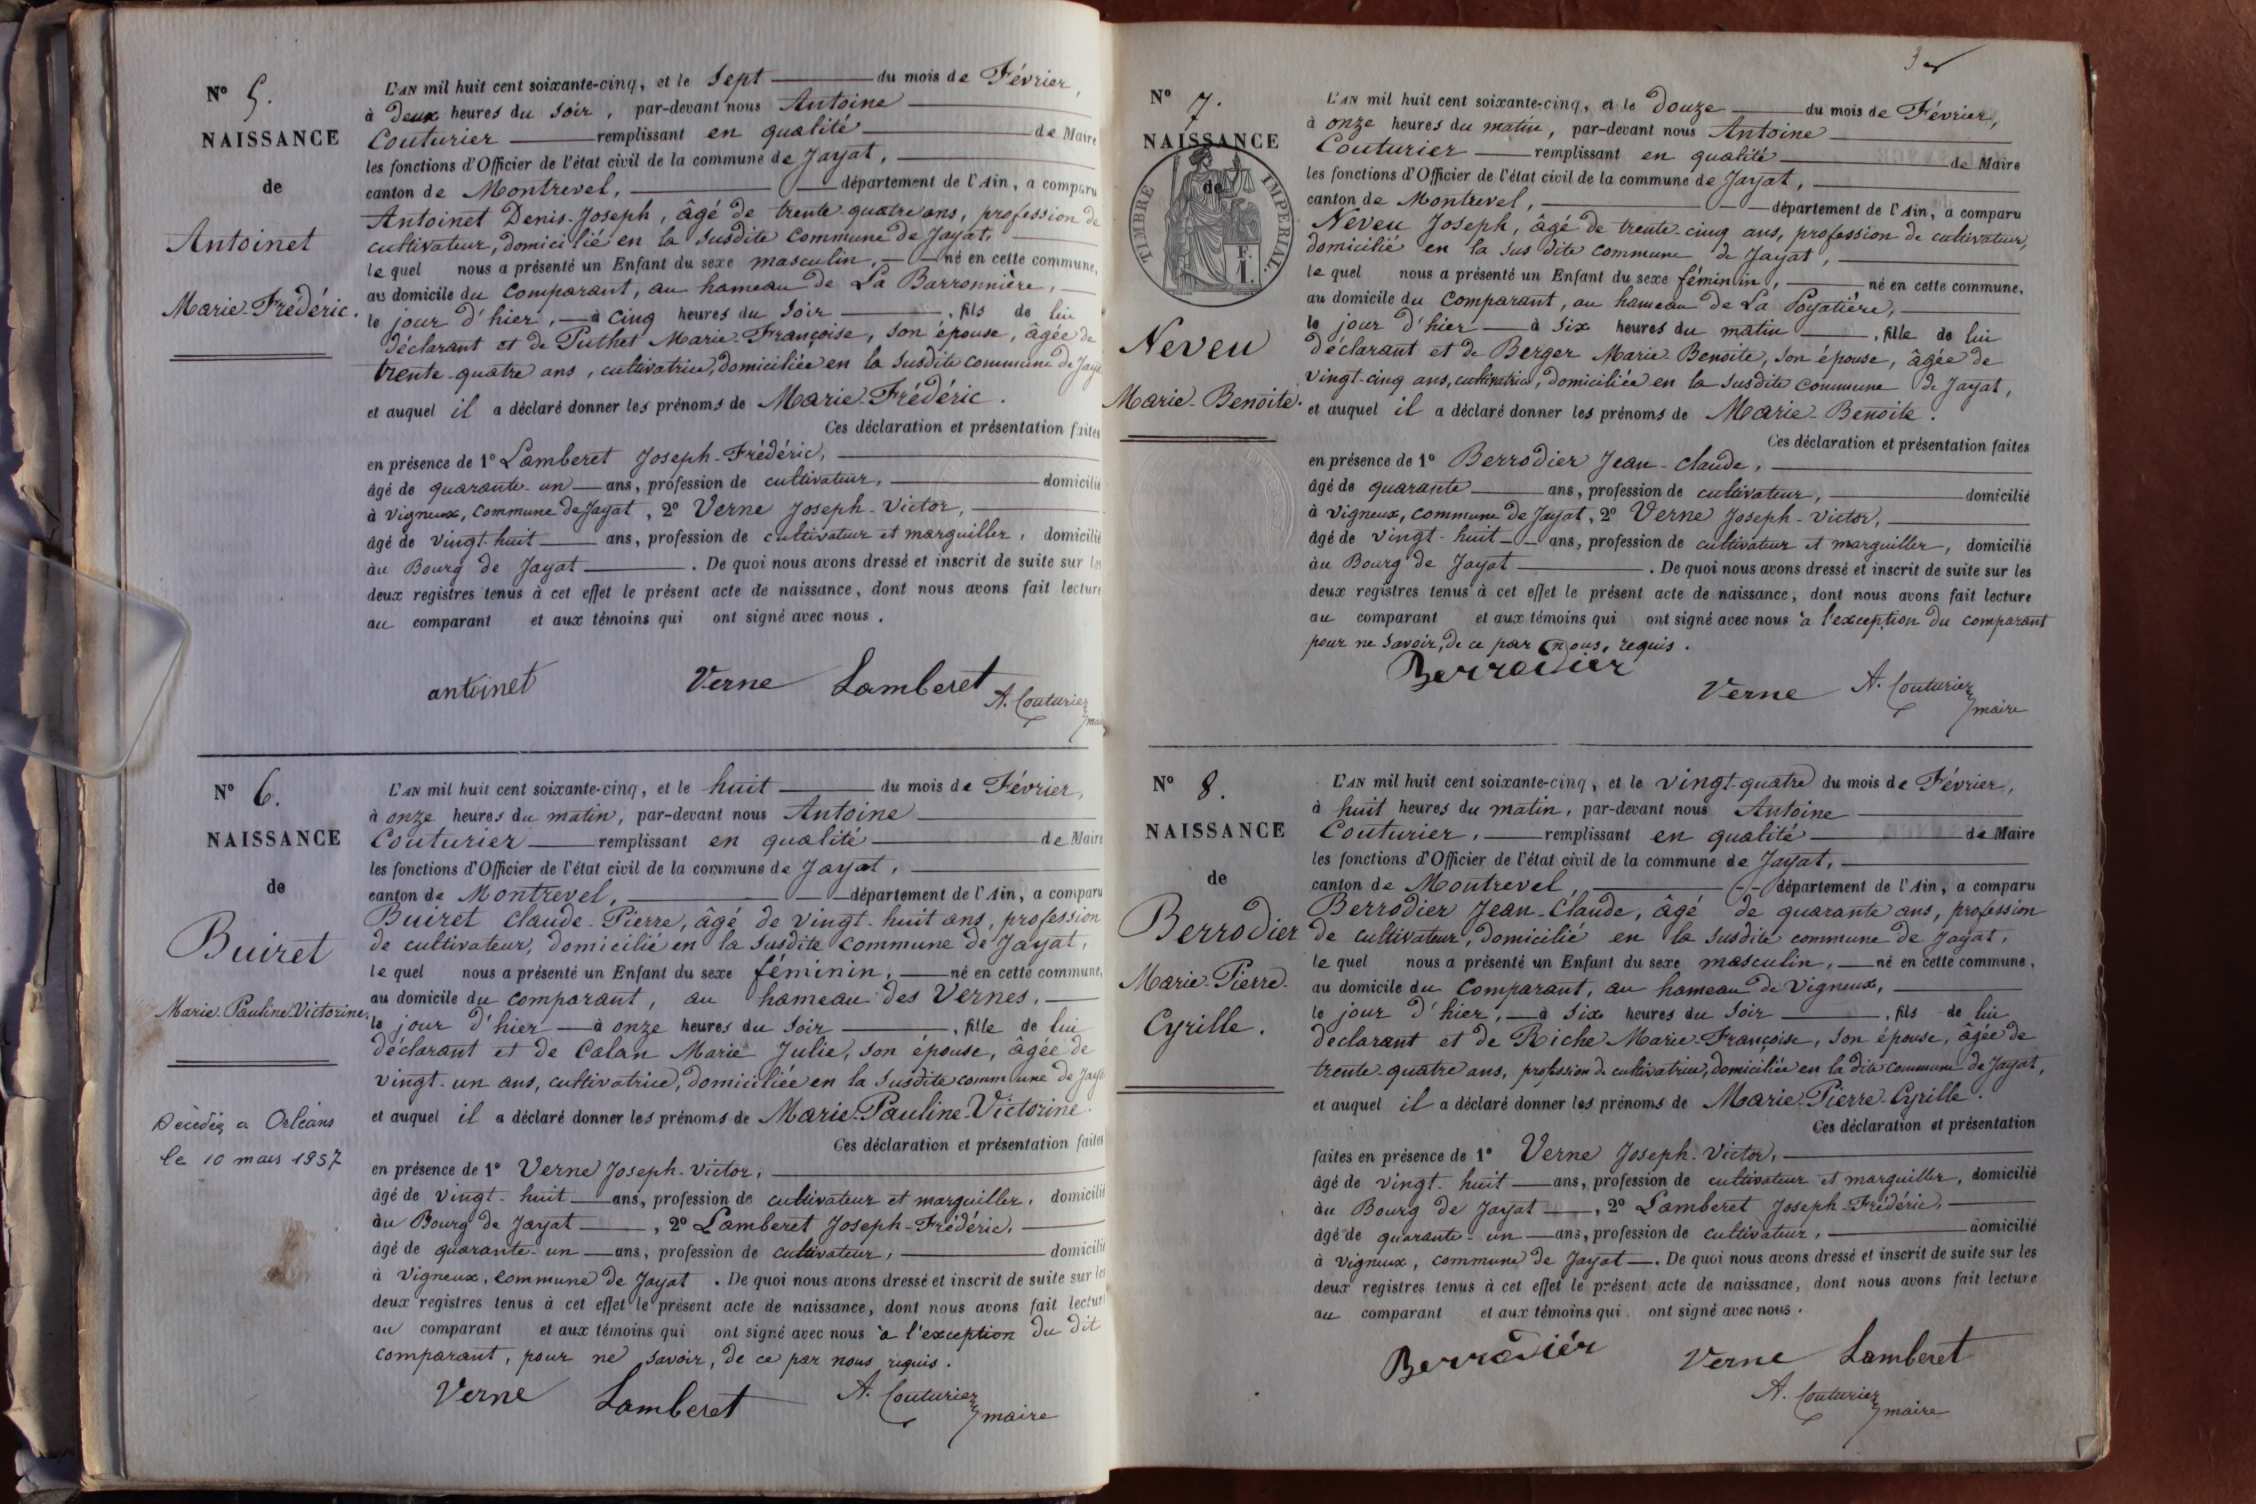 N° 5.
NAISSANCE
de
Antoinet
Marie-Frédéric.
L'AN mil huit cent soixante-cinq, et le sept du mois de Février,
à deux heures du soir, par-devant nous Antoine
Couturier remplissant en qualité de Maire
les fonctions d'Officier de l'état civil de la commune de Jayat,
canton de Montrevel, département de l'Ain, a comparu
Antoinet Denis-Joseph, âgé de trente-quatre ans, profession de
cultivateur, domicilié en la susdite commune de Jayat,
lequel nous a présenté un Enfant du sexe masculin, né en cette commune,
au domicile du comparant, au hameau de La Barronnière,
le jour d'hier, à cinq heures du soir, fils de lui
déclarant et de Puthet Marie-Françoise, son épouse, âgée de
trente-quatre ans, cultivatrice, domiciliée en la susdite commune de Jaya
et auquel il a déclaré donner les prénoms de Marie-Frédéric.
Ces déclaration et présentation faites
en présence de 1° Lamberet Joseph-Frédéric,
âgé de quarante-un ans, profession de cultivateur, domicilié
à Vigneux, commune de Jayat, 2° Verne Joseph-Victor,
âgé de vingt-huit ans, profession de cultivateur et marguiller, domicilié
au Bourg de Jayat. De quoi nous avons dressé et inscrit de suite sur les
deux registres tenus à cet effet le présent acte de naissance, dont nous avons fait lecture
au comparant et aux témoins qui ont signé avec nous.
antoinet Verne Lamberet A. Couturier
maire
N° 6.
NAISSANCE
de
Buiret
Marie-Pauline-Victorine.
Décédée à Orléans
le 10 mars 1957
L'AN mil huit cent soixante-cinq, et le huit du mois de Février,
à onze heures du matin, par-devant nous Antoine
Couturier remplissant en qualité de Maire
les fonctions d'Officier de l'état civil de la commune de Jayat,
canton de Montrevel, département de l'Ain, a comparu
Buiret Claude-Pierre, âgé de vingt-huit ans, profession
de cultivateur, domicilié en la susdite commune de Jayat,
lequel nous a présenté un Enfant du sexe féminin, né en cette commune,
au domicile du comparant, au hameau des Vernes,
le jour d'hier à onze heures du soir, fille de lui
déclarant et de Calan Marie Julie, son épouse, âgée de
vingt-un ans, cultivatrice, domiciliée en la susdite commune de Jaya
et auquel il a déclaré donner les prénoms de Marie-Pauline-Victorine.
Ces déclaration et présentation faites
en présence de 1° Verne Joseph-Victor,
âgé de vingt-huit ans, profession de cultivateur et marguiller, domicilié
au Bourg de Jayat, 2° Lamberet Joseph-Frédéric,
âgé de quarante-un ans, profession de cultivateur, domicilié
à Vigneux, commune de Jayat. De quoi nous avons dressé et inscrit de suite sur les
deux registres tenus à cet effet le présent acte de naissance, dont nous avons fait lecture
au comparant et aux témoins qui ont signé avec nous à l'exception du dit
comparant, pour ne savoir, de ce par nous requis.
Verne Lamberet A. Couturier
maire
3
N° 7.
NAISSANCE
de
TIMBRE IMPERIAL.
F.
1.
Neveu
Marie-Benoite.
L'AN mil huit cent soixante-cinq, et le douze du mois de Février,
à onze heures du matin, par-devant nous Antoine
Couturier remplissant en qualité de Maire
les fonctions d'Officier de l'état civil de la commune de Jayat,
canton de Montrevel, département de l'Ain, a comparu
Neveu Joseph, âgé de trente-cinq ans, profession de cultivateur,
domicilié en la susdite commune de Jayat,
lequel nous a présenté un Enfant du sexe féminin, né en cette commune,
au domicile du comparant, au hameau de La Poyatière,
le jour d'hier à six heures du matin, fille de lui
déclarant et de Berger Marie-Benoite, son épouse, âgée de
vingt-cinq ans, cultivatrice, domiciliée en la susdite commune de Jayat,
et auquel il a déclaré donner les prénoms de Marie-Benoite.
Ces déclaration et présentation faites
en présence de 1° Berrodier Jean-Claude,
âgé de quarante ans, profession de cultivateur, domicilié
à Vigneux, commune de Jayat, 2° Verne Joseph-Victor,
âgé de vingt-huit ans, profession de cultivateur et marguiller, domicilié
au Bourg de Jayat. De quoi nous avons dressé et inscrit de suite sur les
deux registres tenus à cet effet le présent acte de naissance, dont nous avons fait lecture
au comparant et aux témoins qui ont signé avec nous à l'exception du comparant
pour ne savoir, de ce par nous, requis.
Berrodier Verne A. Couturier
maire
N° 8.
NAISSANCE
de
Berrodier
Marie-Pierre-
Cyrille.
L'AN mil huit cent soixante-cinq, et le vingt-quatre du mois de Février,
à huit heures du matin, par-devant nous Antoine
Couturier, remplissant en qualité de Maire
les fonctions d'Officier de l'état civil de la commune de Jayat,
canton de Montrevel, département de l'Ain, a comparu
Berrodier Jean-Claude, âgé de quarante ans, profession
de cultivateur, domicilié en la susdite commune de Jayat,
lequel nous a présenté un Enfant du sexe masculin, né en cette commune,
au domicile du comparant, au hameau de Vigneux,
le jour d'hier, à six heures du soir, fils de lui
déclarant et de Riche Marie-Françoise, son épouse, âgée de
trente-quatre ans, profession de cultivatrice, domiciliée en la dite commune de Jayat,
et auquel il a déclaré donner les prénoms de Marie-Pierre-Cyrille.
Ces déclaration et présentation
faites en présence de 1° Verne Joseph-Victor,
âgé de vingt-huit ans, profession de cultivateur et marguiller, domicilié
au Bourg de Jayat, 2° Lamberet Joseph-Frédéric,
âgé de quarante-un ans, profession de cultivateur, domicilié
à Vigneux, commune de Jayat. De quoi nous avons dressé et inscrit de suite sur les
deux registres tenus à cet effet le présent acte de naissance, dont nous avons fait lecture
au comparant et aux témoins qui ont signé avec nous.
Berrodier Verne Lamberet
A. Couturier
maire